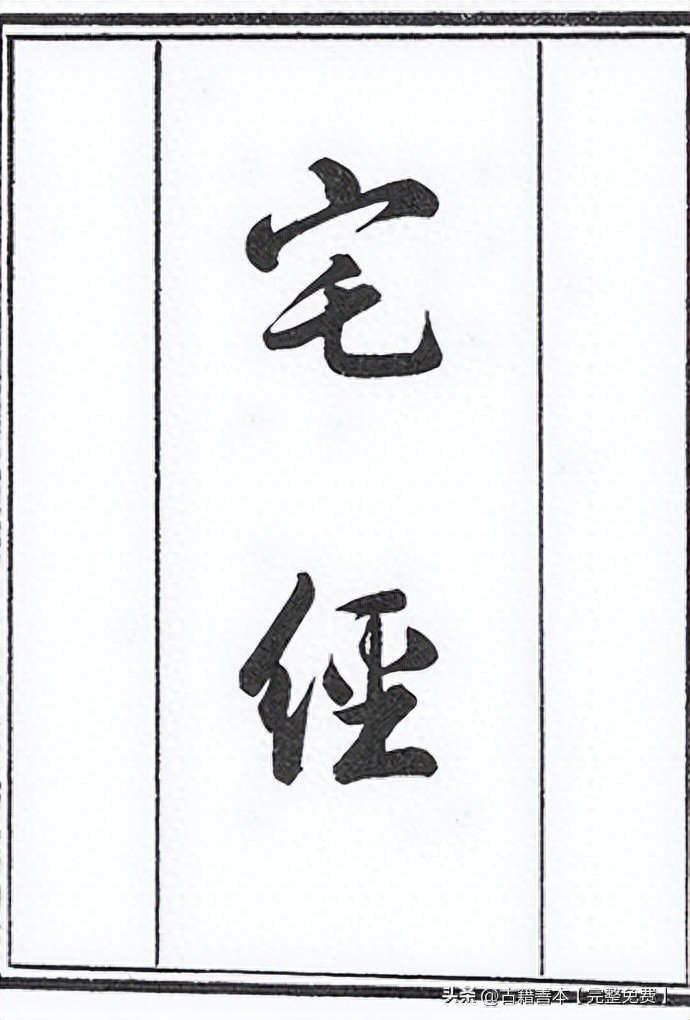 宅經
头条 @古籍善本【完整免费】